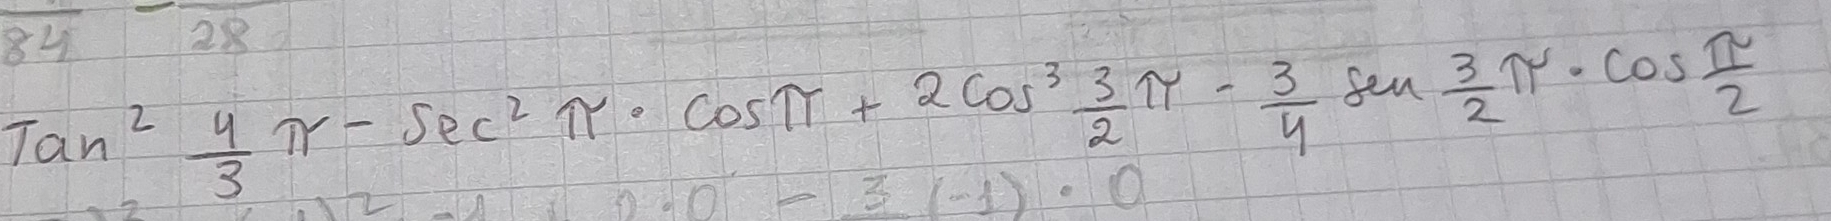 84 - 28
Tan² 4/3 π - Sec² π · cos π + 2 Cos³ 3/2 π - 3/4 sen 3/2 π · cos π/2
2 2 -1 0·0 - 3 (-1) · 0